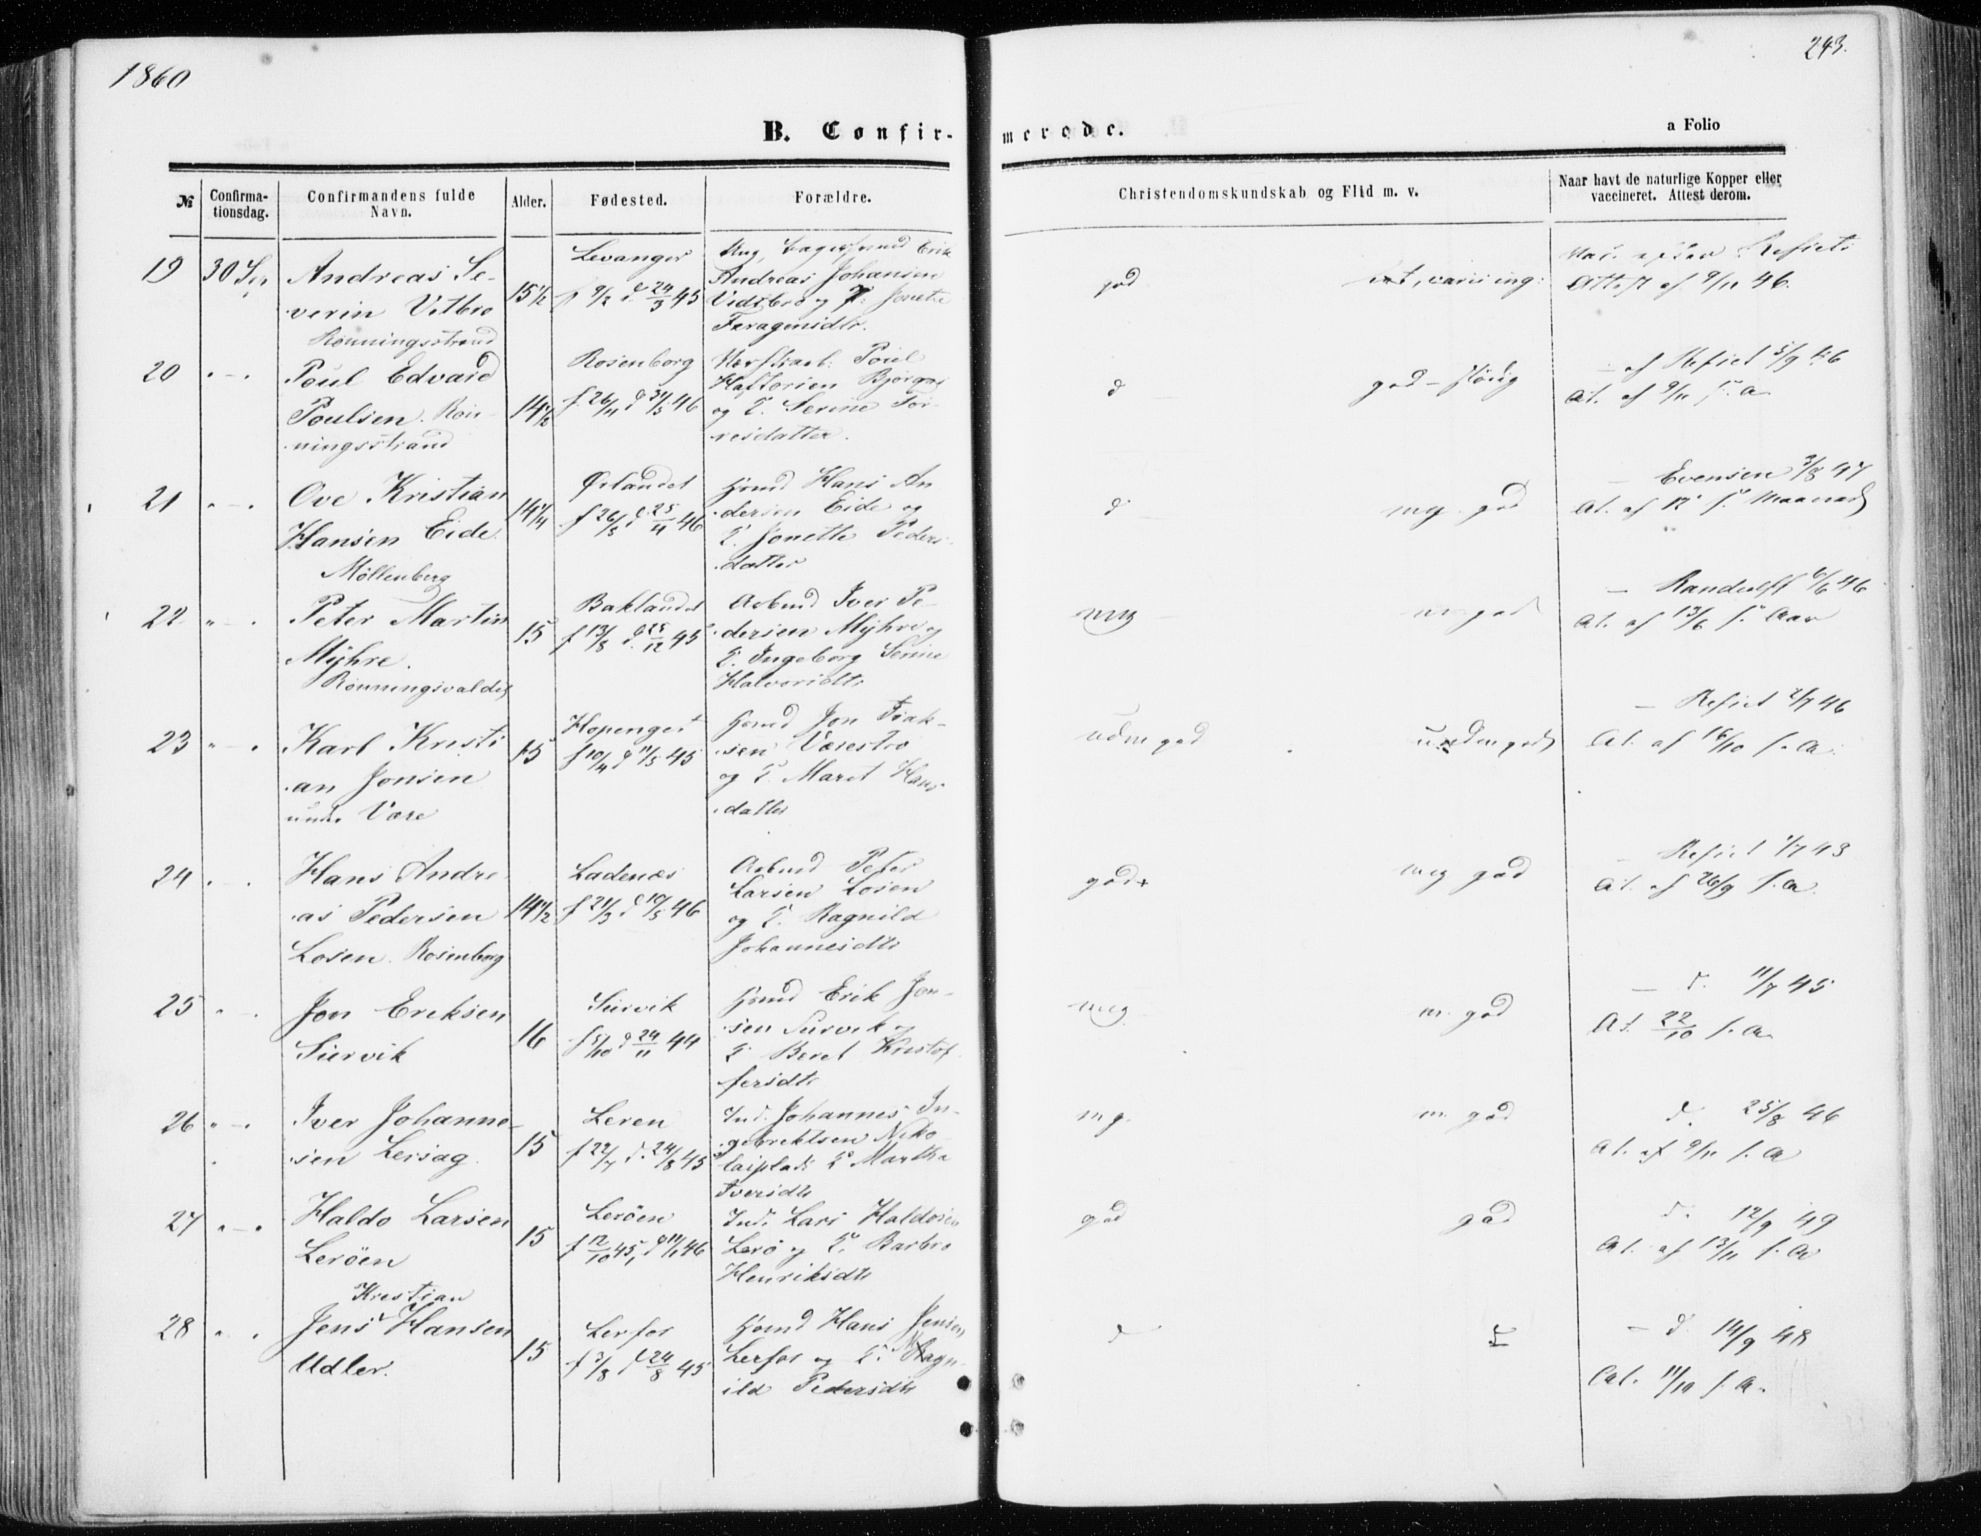 1860
243.
B. Confir-
merede.
a Folio
№
Confirma-
tionsdag.
Confirmandens fulde
Navn.
Alder.
Fødested.
Forældre.
Christendomskundskab og Flid m. v.
Naar havt de naturlige Kopper eller
vaccineret. Attest derom.
19
30 Sep
Andreas Se-
verin Vitbro
Rønningsstrand
15½
Levanger
f 9/2 d. 24/3 45
Erik
Andreas Johansen
Vidsbro og Jonetta
god
Attest af 9/11 46.
20
Poul Edvard
Poulsen. Røn-
ningsstrand
14½
Rosenborg
f. 26/11 d 31/5 46
Poul
Haftorsen
og T. Serine Tor-
resdatter.
d
god - flitig
af Refset 5/9 46
At. af 9/11 s. A
21
Ove Kristian
Hansen Eide.
Møllenberg
14¼
Ørlandet
f 26/3 d. 25/4 46
Hans An
dersen Eide og
T. Jonette Peders-
datter
d
meg. god
Evensen 3/8 47
At. af 12 s. Maaned
22
Peter Martin
Myhre.
Rønningsvaldet
15
Baklandet
f 13/8 d. 25/12 45
Arbmd Iver Pe-
dersen Myhre og
T. Ingeborg Serine
Halvorsdtr
meg
m. god
Randulff 6/6 46
At. af 13/6 s. Aar
23
Karl Kristi
an Jonsen
Være
15
Hopenget
f 10/4 d 11/5 45
Jon Isak-
sen Værestrø
og T. Maret Hans
datter
udm god
udm god
Refset 2/7 46
At. af 16/10 s. A.
24
Hans Andre
as Pedersen
Losen. Rosenborg
14½
Ladenæs
f 21/3 d 10/5 46
Arbmd Peter
Larsen Losen
og T. Ragnild
Johannesdtr
god
meg god
Refset 1/7 43
At. af 26/9 s. A.
25
Jon Eriksen
Survik
16
Survik
f 5/10 d 24/11 44
Erik Jon-
sen Survik og
T Beret Kristof
fersdtr
meg
m. god
d. 11/7 45
At. 22/10 s. A
26
Iver Johanne-
sen Lersag.
15
Leren
f 22/7 d. 24/8 45
Ind. Johannes In-
gebrektsen Niko
laiplads T. Martha
Iversdtr
mg.
m. god
d. 25/8 46
At. af 9/11 s. A
27
Haldo Larsen
Lerøen
15
Lerøen
f 12/10 45, d 11/1 46
Ind. Lars Haldosen
Lerø og T. Barbro
Henriksdtr
god
god
d. 12/9 49
At. af 13/11 s. A
28
Kristian
Jens Hansen
Udler.
15
Lerfos
f 3/8 d 24/8 45
Hans Jensen
Lerfos og T. Ragn
ild Pedersdtr
d
d. 14/9 48
At. 11/10 s. A.